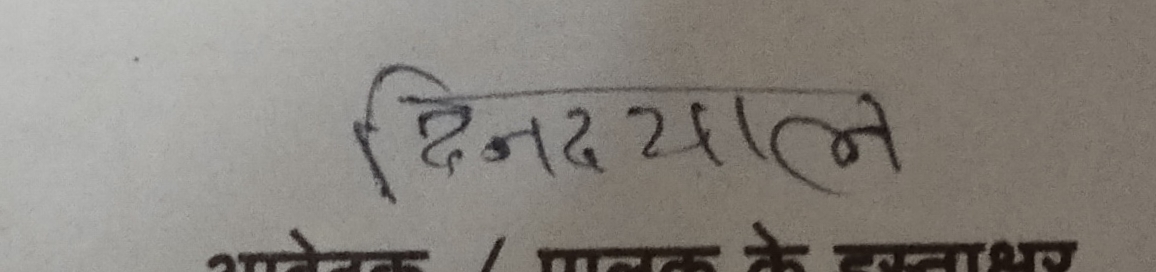 दिनदयाल
आवेदक / पालक के हस्ताक्षर